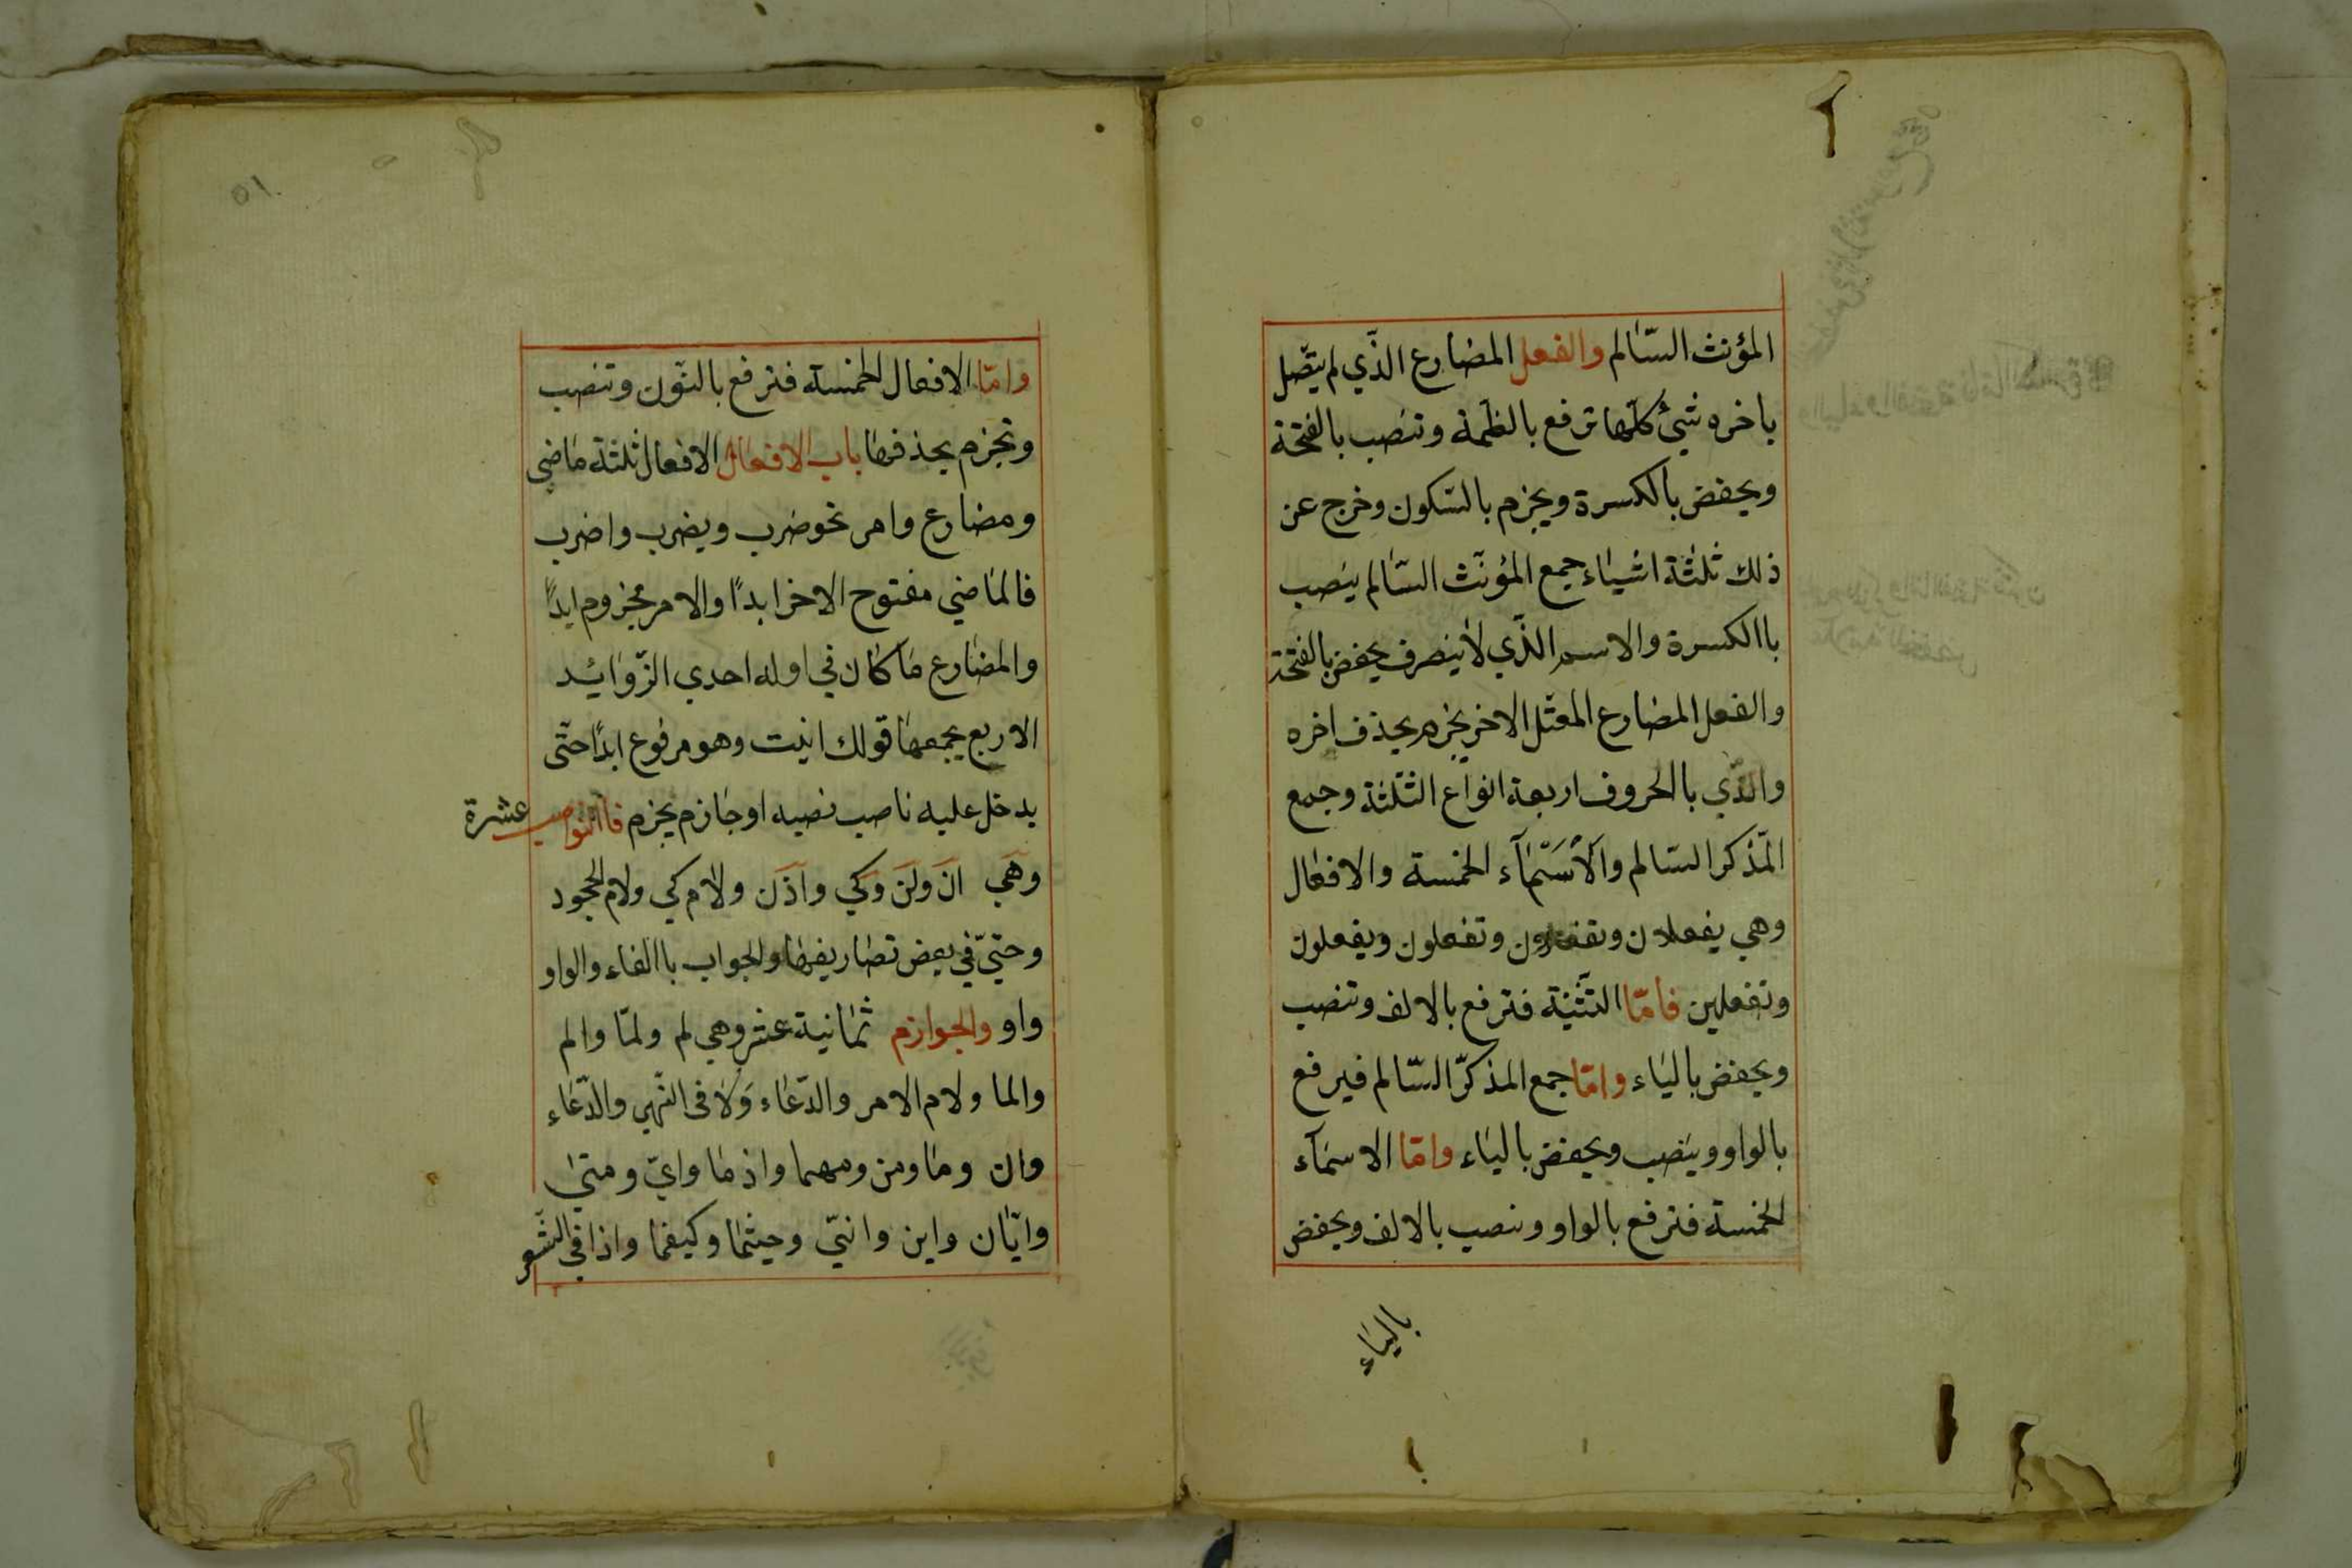 المؤنث السّالم والفعل المضارع الذّي لم يتّصل
باخره شئ كلّها ترفع بالظمّة وتنصب بالفتحة
ويخفض بالكسرة ويجزم بالسّكون وخرج عن
ذلك ثلثة اشياء جمع المؤنّث السّالم ينصب
باالكسرة والاسم الذّي لا ينصرف يخفض بالفتحة
والفعل المضارع المعتّل الاخر يجزم بحذف اخره
والذّي باالحروف اربعة انواع التّثنثة وجمع
المّذكر السّالم والأسمآء الخمسة والافعال
وهي يفعلان وتفعلان وتفعلون ويفعلون
وتفعلين فامّا التثّنية فترفع بالالف وتنصب
ويخفض بالياء وامّا جمع المذكّر السّالم فيرفع
بالواو وينصب ويخفض بالياء وامّا الاسمآء
الخمسة فترفع بالواو وتنصب بالالف ويخفض
بالياء
٥١
وامّا الافعال الخمسة فترفع بالنّون وتنصب
وتجزم بحذفها باب الافعال الافعال ثلثة ماضي
ومضارع وامر نحو ضرب ويضرب واضرب
فالماضي مفتوح الاخر ابدًا والامر مجزوم ابدًا
والمضارع ما كان في اوله احدي الزّوائد
الاربع يجمعها قولك انيت وهو مرفوع ابدًا حتّى
يدخل عليه ناصب نصبه او جازم يجزم فاالنواصب عشرة
وهي ان ولن وكي واذن ولام كي ولام الجحود
وحتيّ في بعض تصاريفها والجواب باالفاء والواو
واو والجوازم ثمانية عشر وهي لم ولمّا والم
والما ولام الامر والدّعاء ولا فى النّهي والدّعاء
وان وما ومن ومهما واذ ما وايّ ومتى
وايّان واين وانيّ وحيثما وكيفما واذا في الشّعر